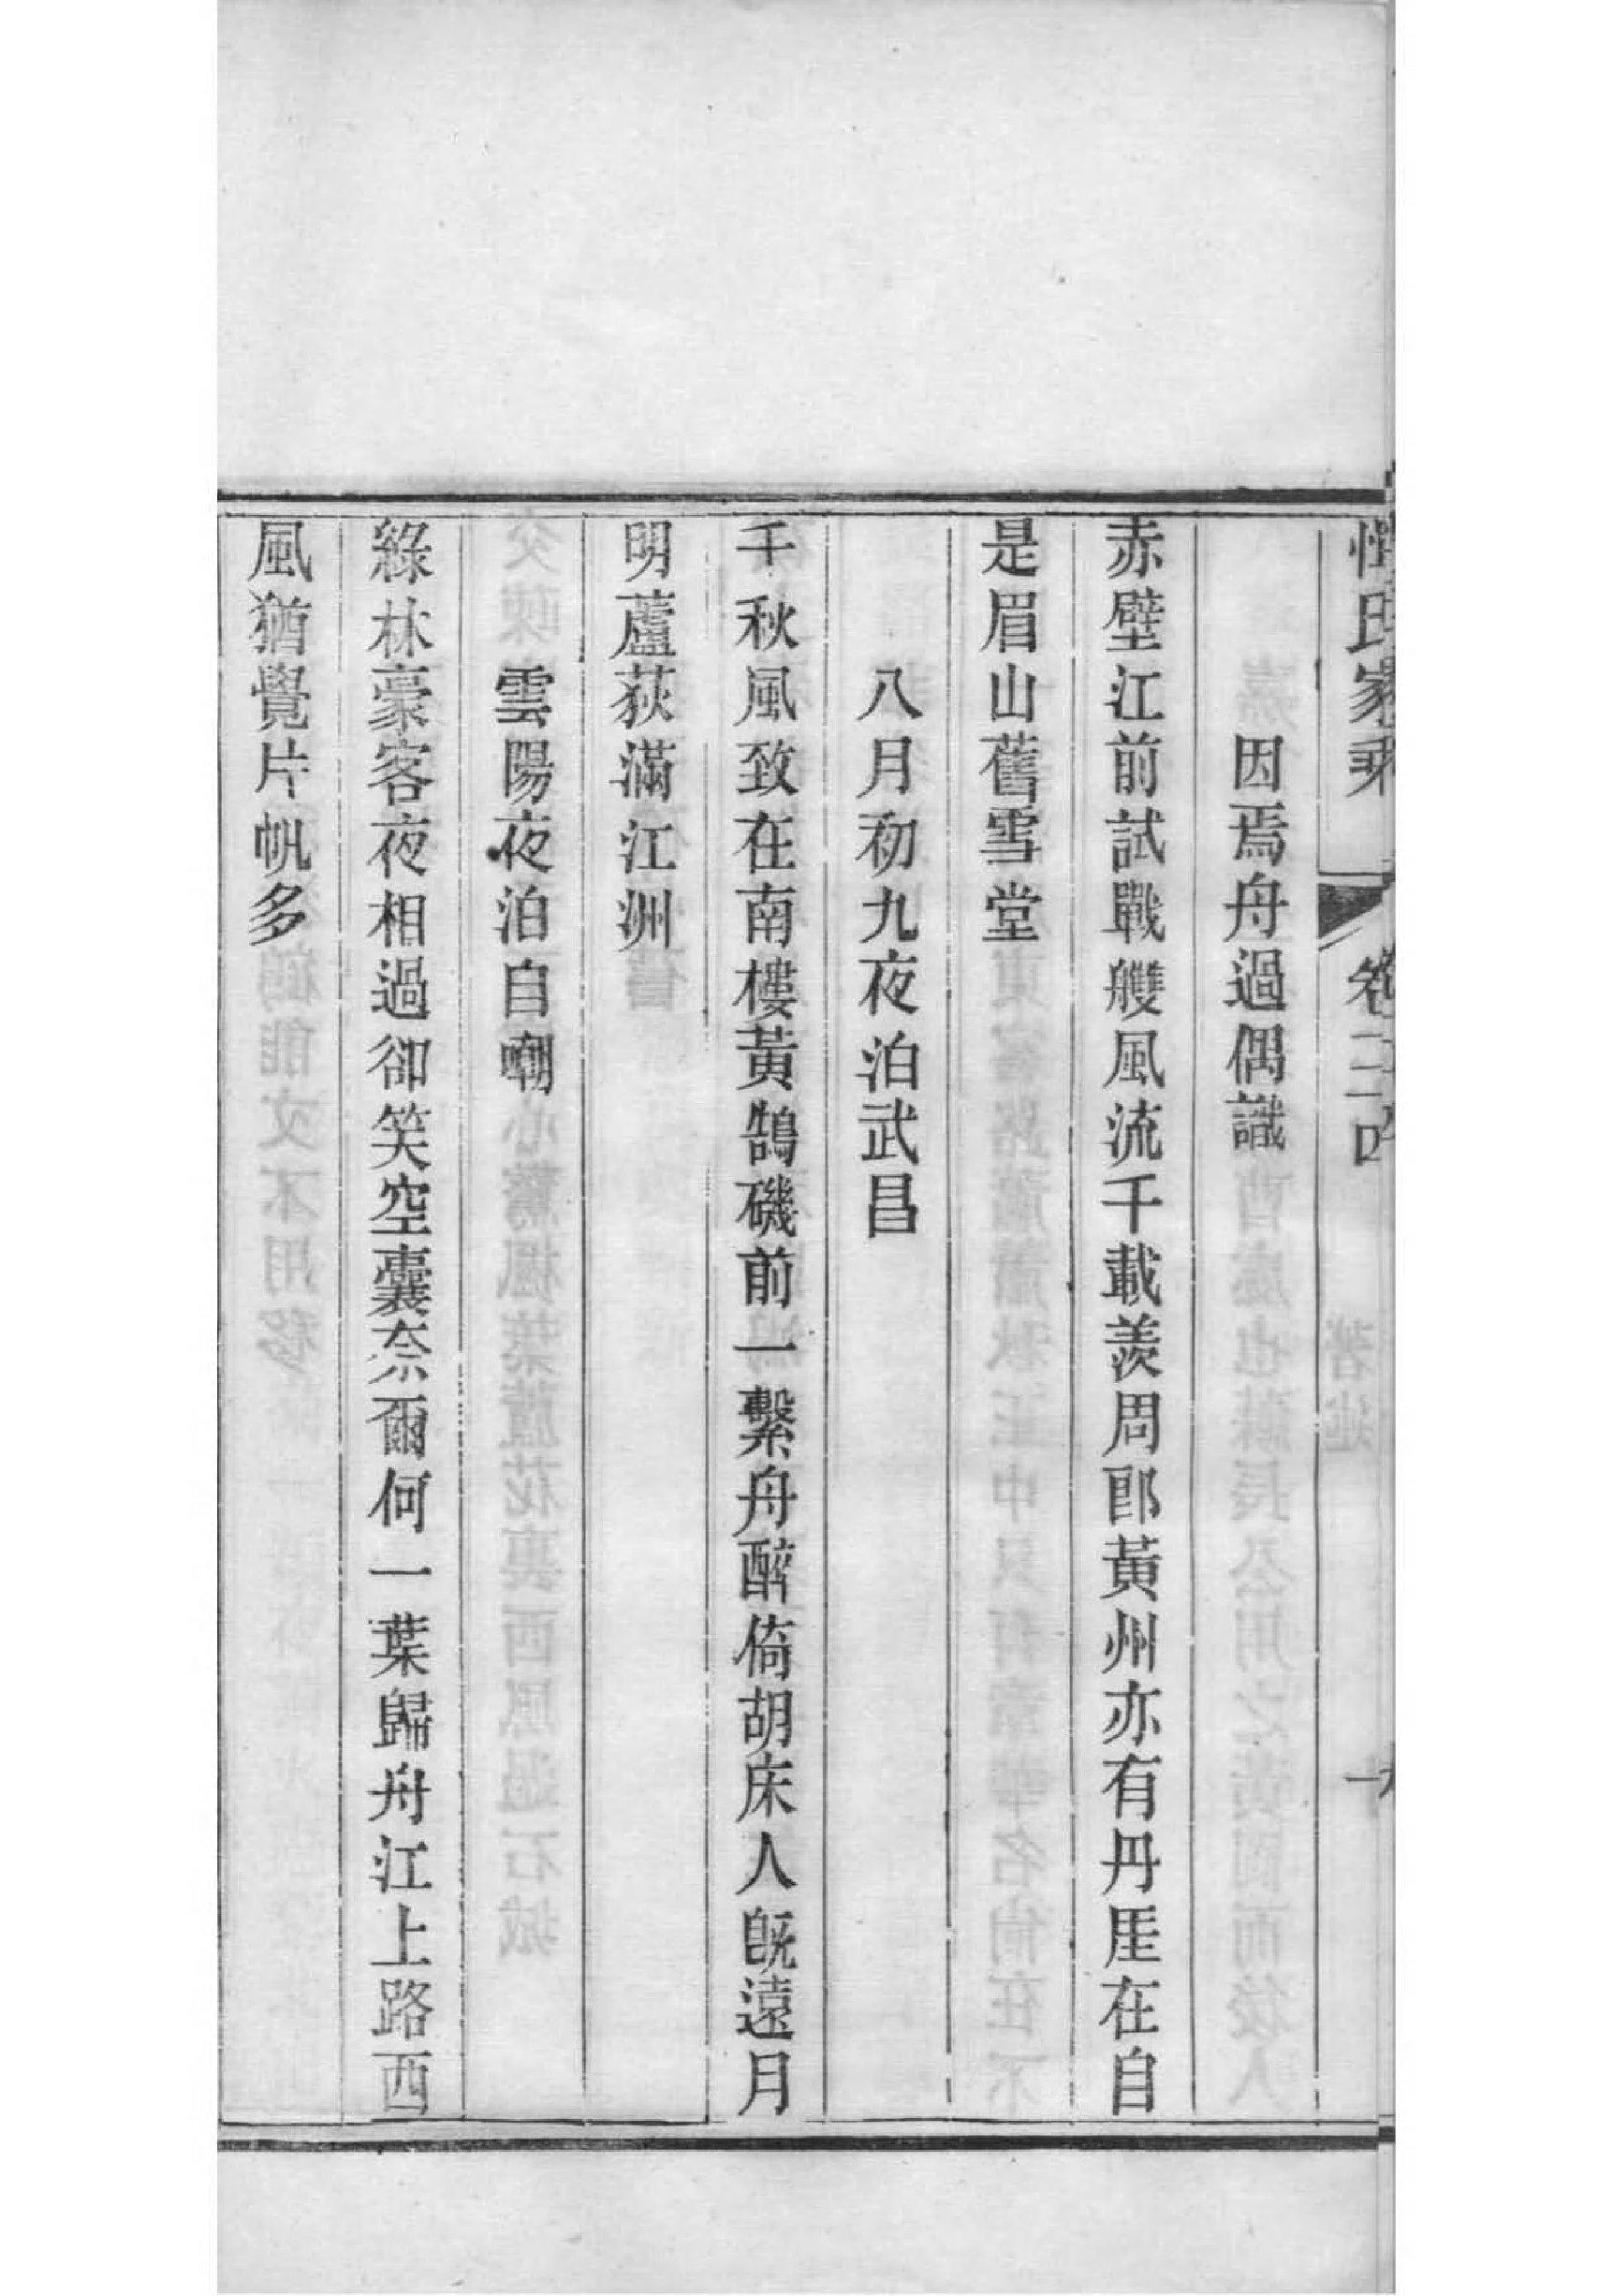 惲氏家乘
因焉舟過偶識
赤壁江前試戰艭風流千載羨周郎黃州亦有丹厓在自
是眉山舊雪堂
八月初九夜泊武昌
千秋風致在南樓黃鵠磯前一繫舟醉倚胡床人旣遠月
明蘆荻滿江洲
雲陽夜泊自嘲
綠林豪客夜相過卻笑空囊奈爾何一葉歸舟江上路西
風猶覺片帆多